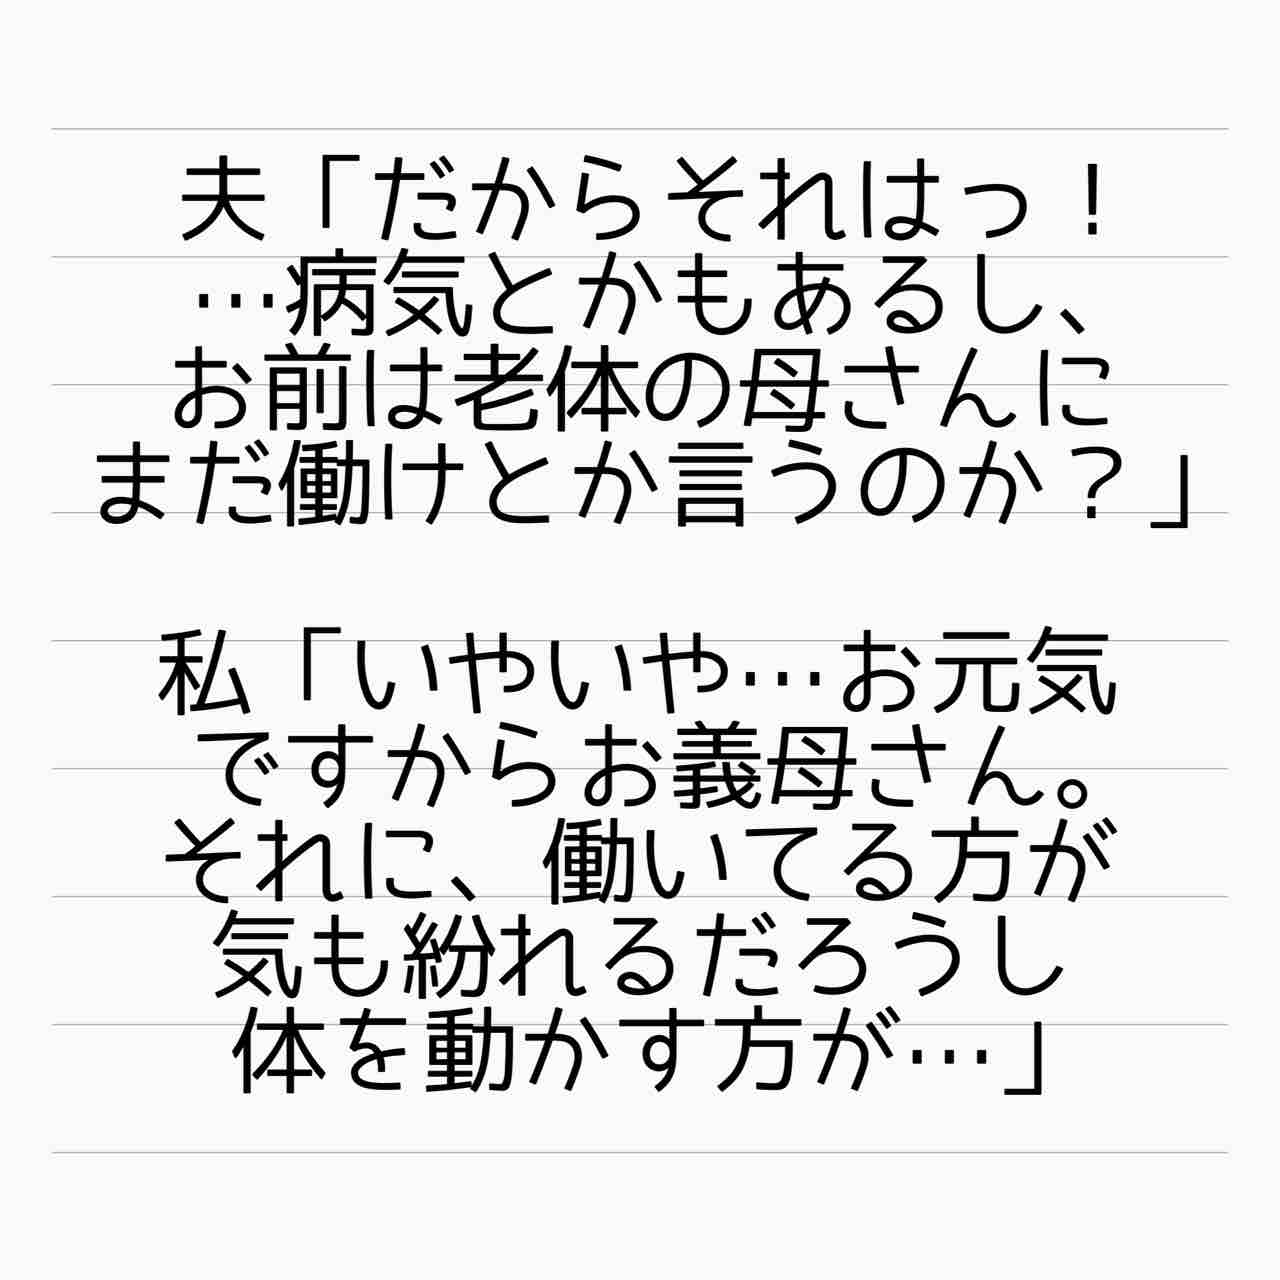 夫「だからそれはっ！
…病気とかもあるし、
お前は老体の母さんに
まだ働けとか言うのか？」
私「いやいや…お元気
ですからお義母さん。
それに、働いてる方が
気も紛れるだろうし
体を動かす方が…」